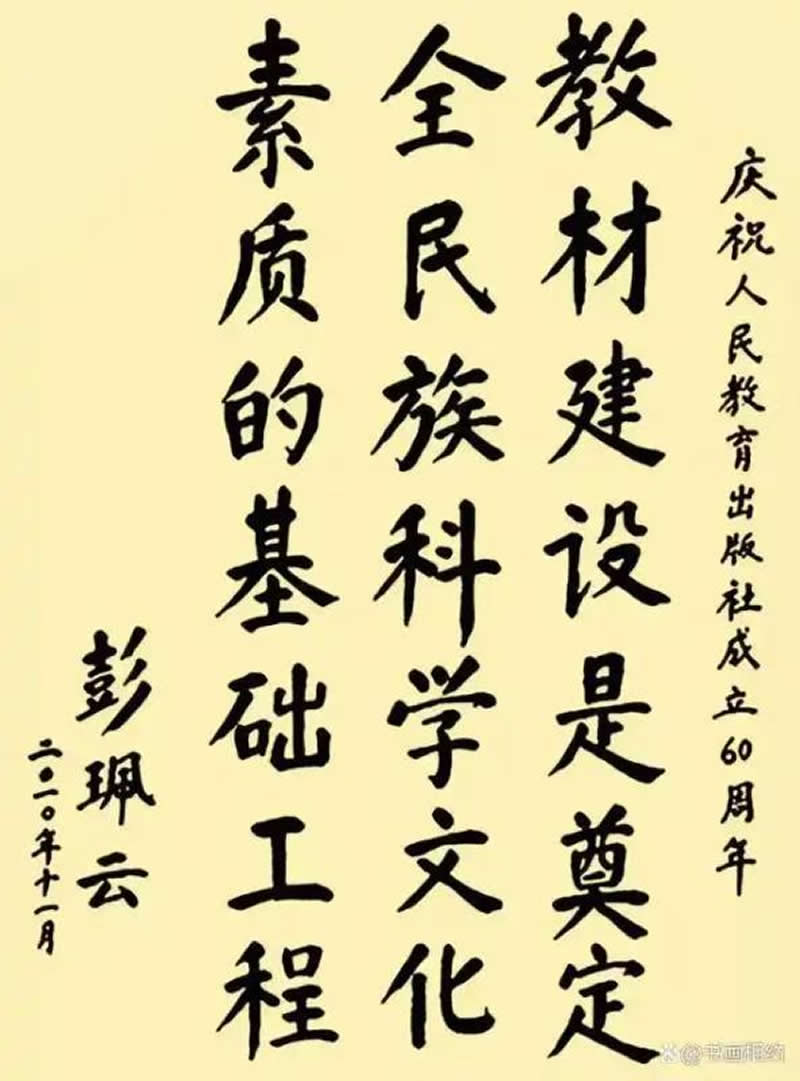 庆祝人民教育出版社成立60周年
教材建设是奠定
全民族科学文化
素质的基础工程
彭珮云
二〇一〇年十一月
@书画相约